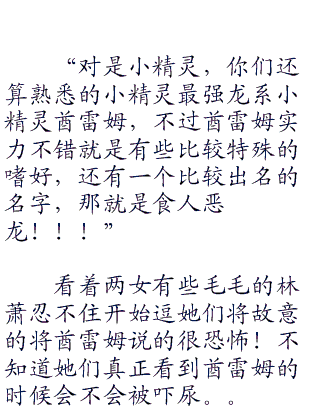 “对是小精灵，你们还
算熟悉的小精灵最强龙系小
精灵酋雷姆，不过酋雷姆实
力不错就是有些比较特殊的
嗜好，还有一个比较出名的
名字，那就是食人恶
龙！！！”
看着两女有些毛毛的林
萧忍不住开始逗她们将故意
的将酋雷姆说的很恐怖！不
知道她们真正看到酋雷姆的
时候会不会被吓尿。。